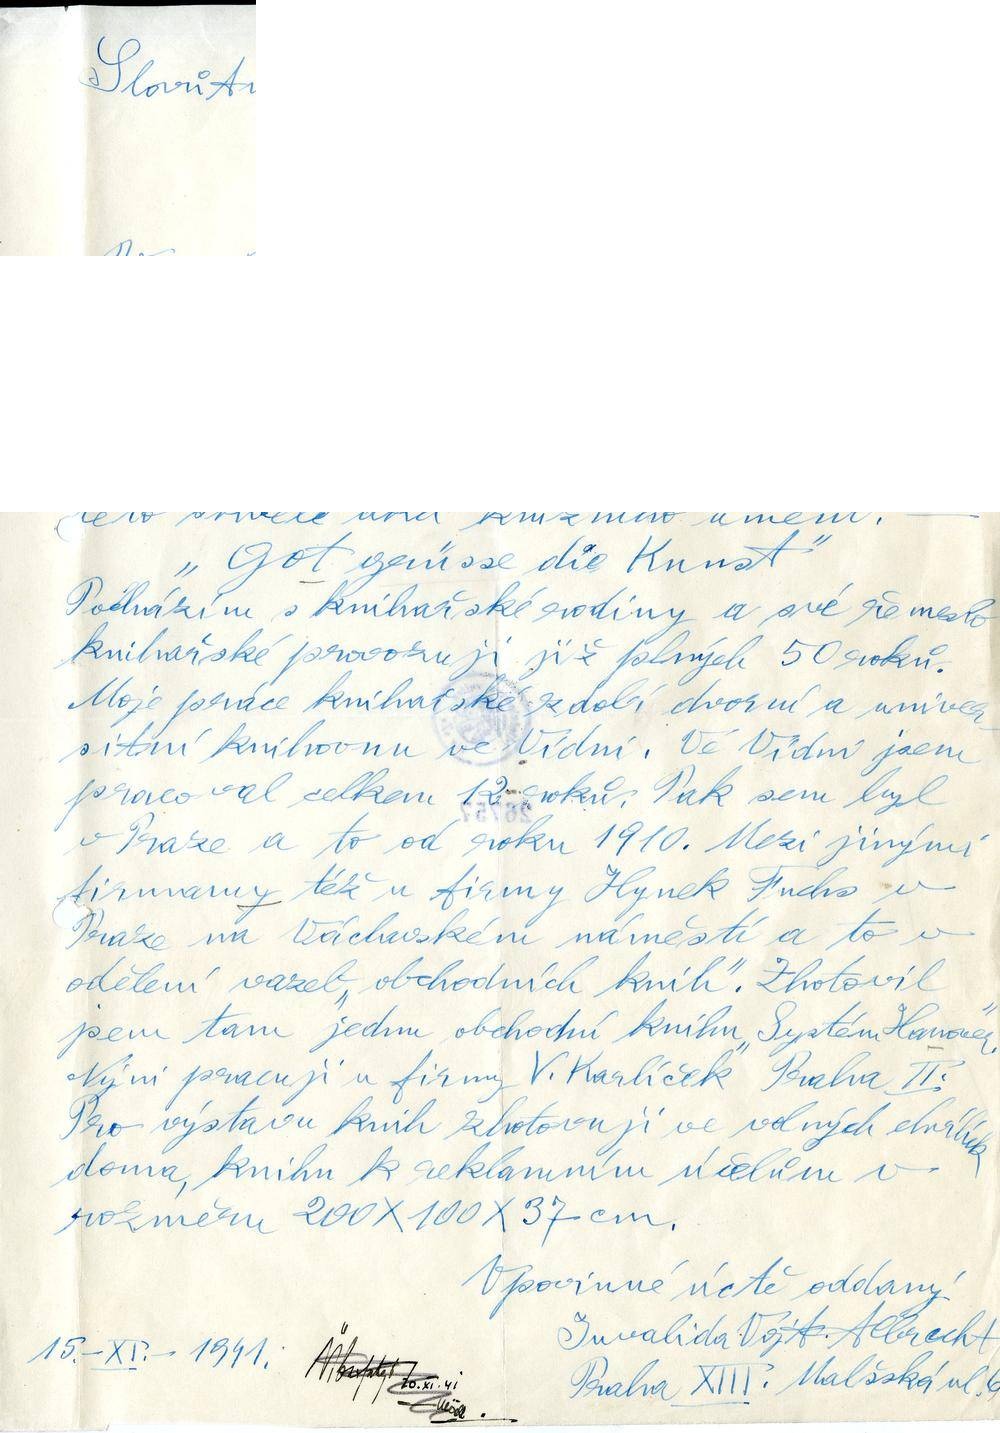 „Got grüsse die Kunst"
Pocházím s knihařské rodiny a své řemeslo
knihařské provozuji již plných 50 roků.
Moje práce knihařské zdobí dvorní a univer
sitní knihovnu ve Vídni. Ve Vídni jsem
pracoval celkem 12 roků. Pak sem byl
v Praze a to od roku 1910. Mezi jinými
firmamy též u firmy Hynek Fuchs v
Praze na Václavském náměstí a to v
odělení vazeb „obchodních knih". Zhotovil
jsem tam jednu obchodní knihu „Systém Hanover."
Nyní pracuji u firmy V. Karlíček" Praha II:
Pro výstavu knih zhotovuji ve volných chvílích
doma, knihu k reklamním účelům v
rozměru 200X100X37 cm.
V povinné úctě oddaný
Invalida Vojt. Albrecht
15.-XI.- 1941.
20.XI.41
Praha XIII. Malšská ul. 6
26757